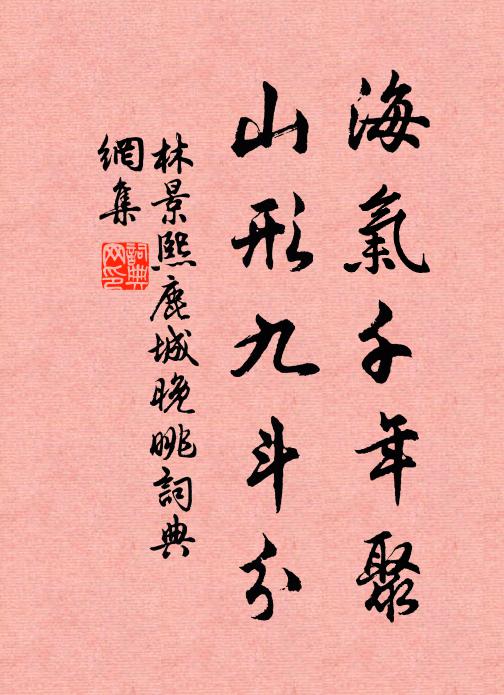 海氣千年聚
山形九斗分
林景熙鹿城晚眺詞典
網集
詞典
网印